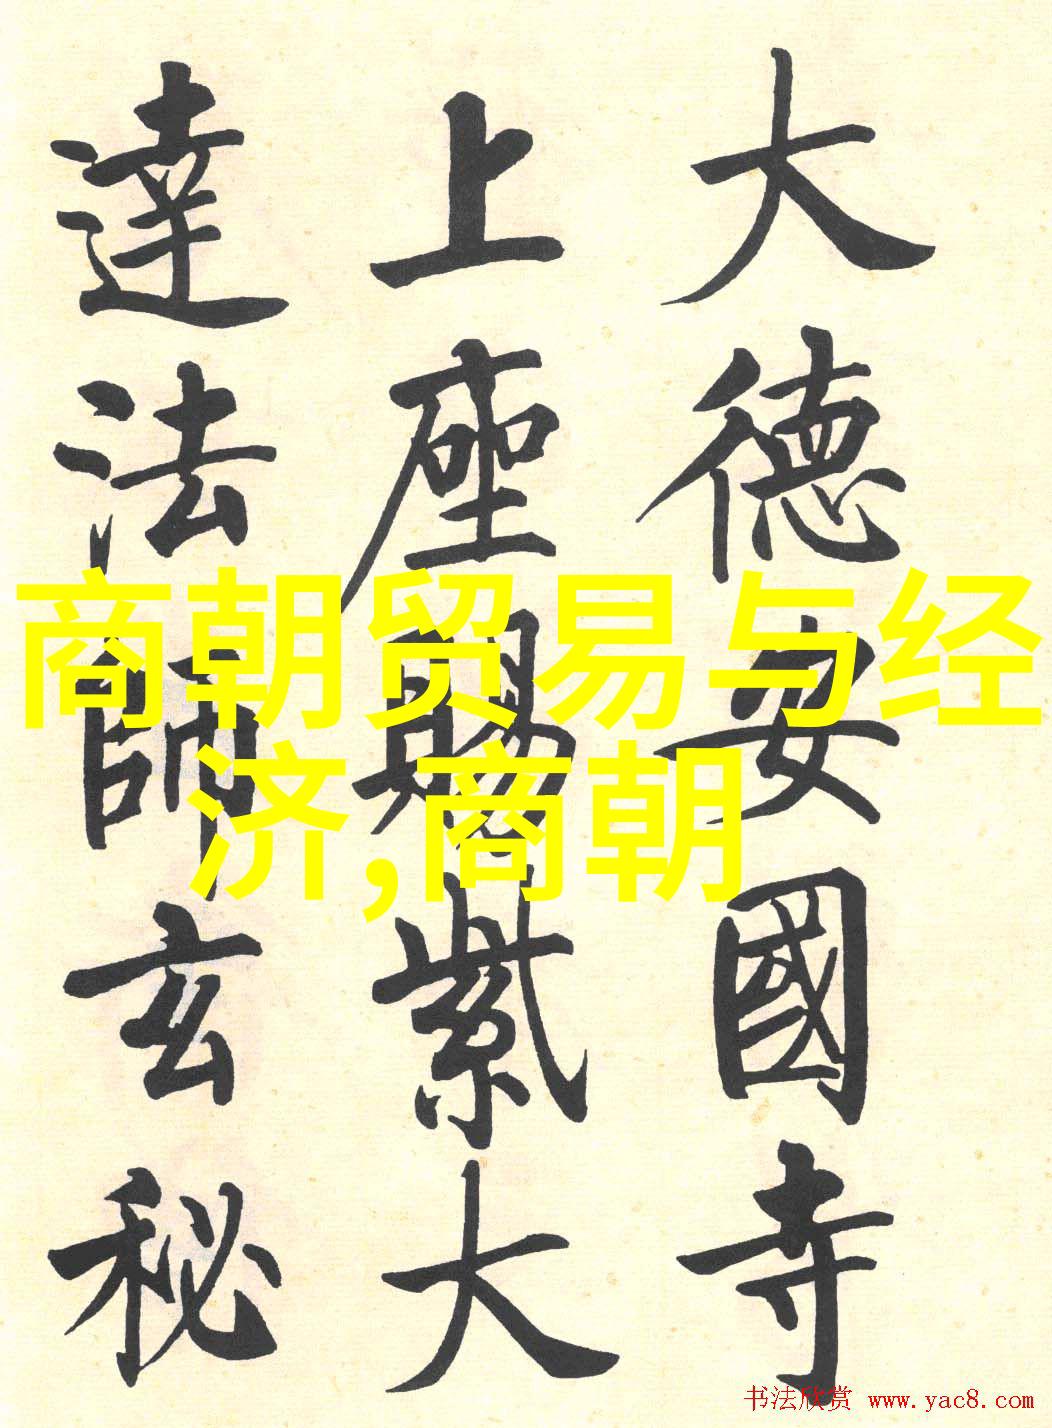 大德安國寺
上座賜紫大
達法師玄秘
商朝贸易与经
济,商朝
书法欣赏 www.yac8.com